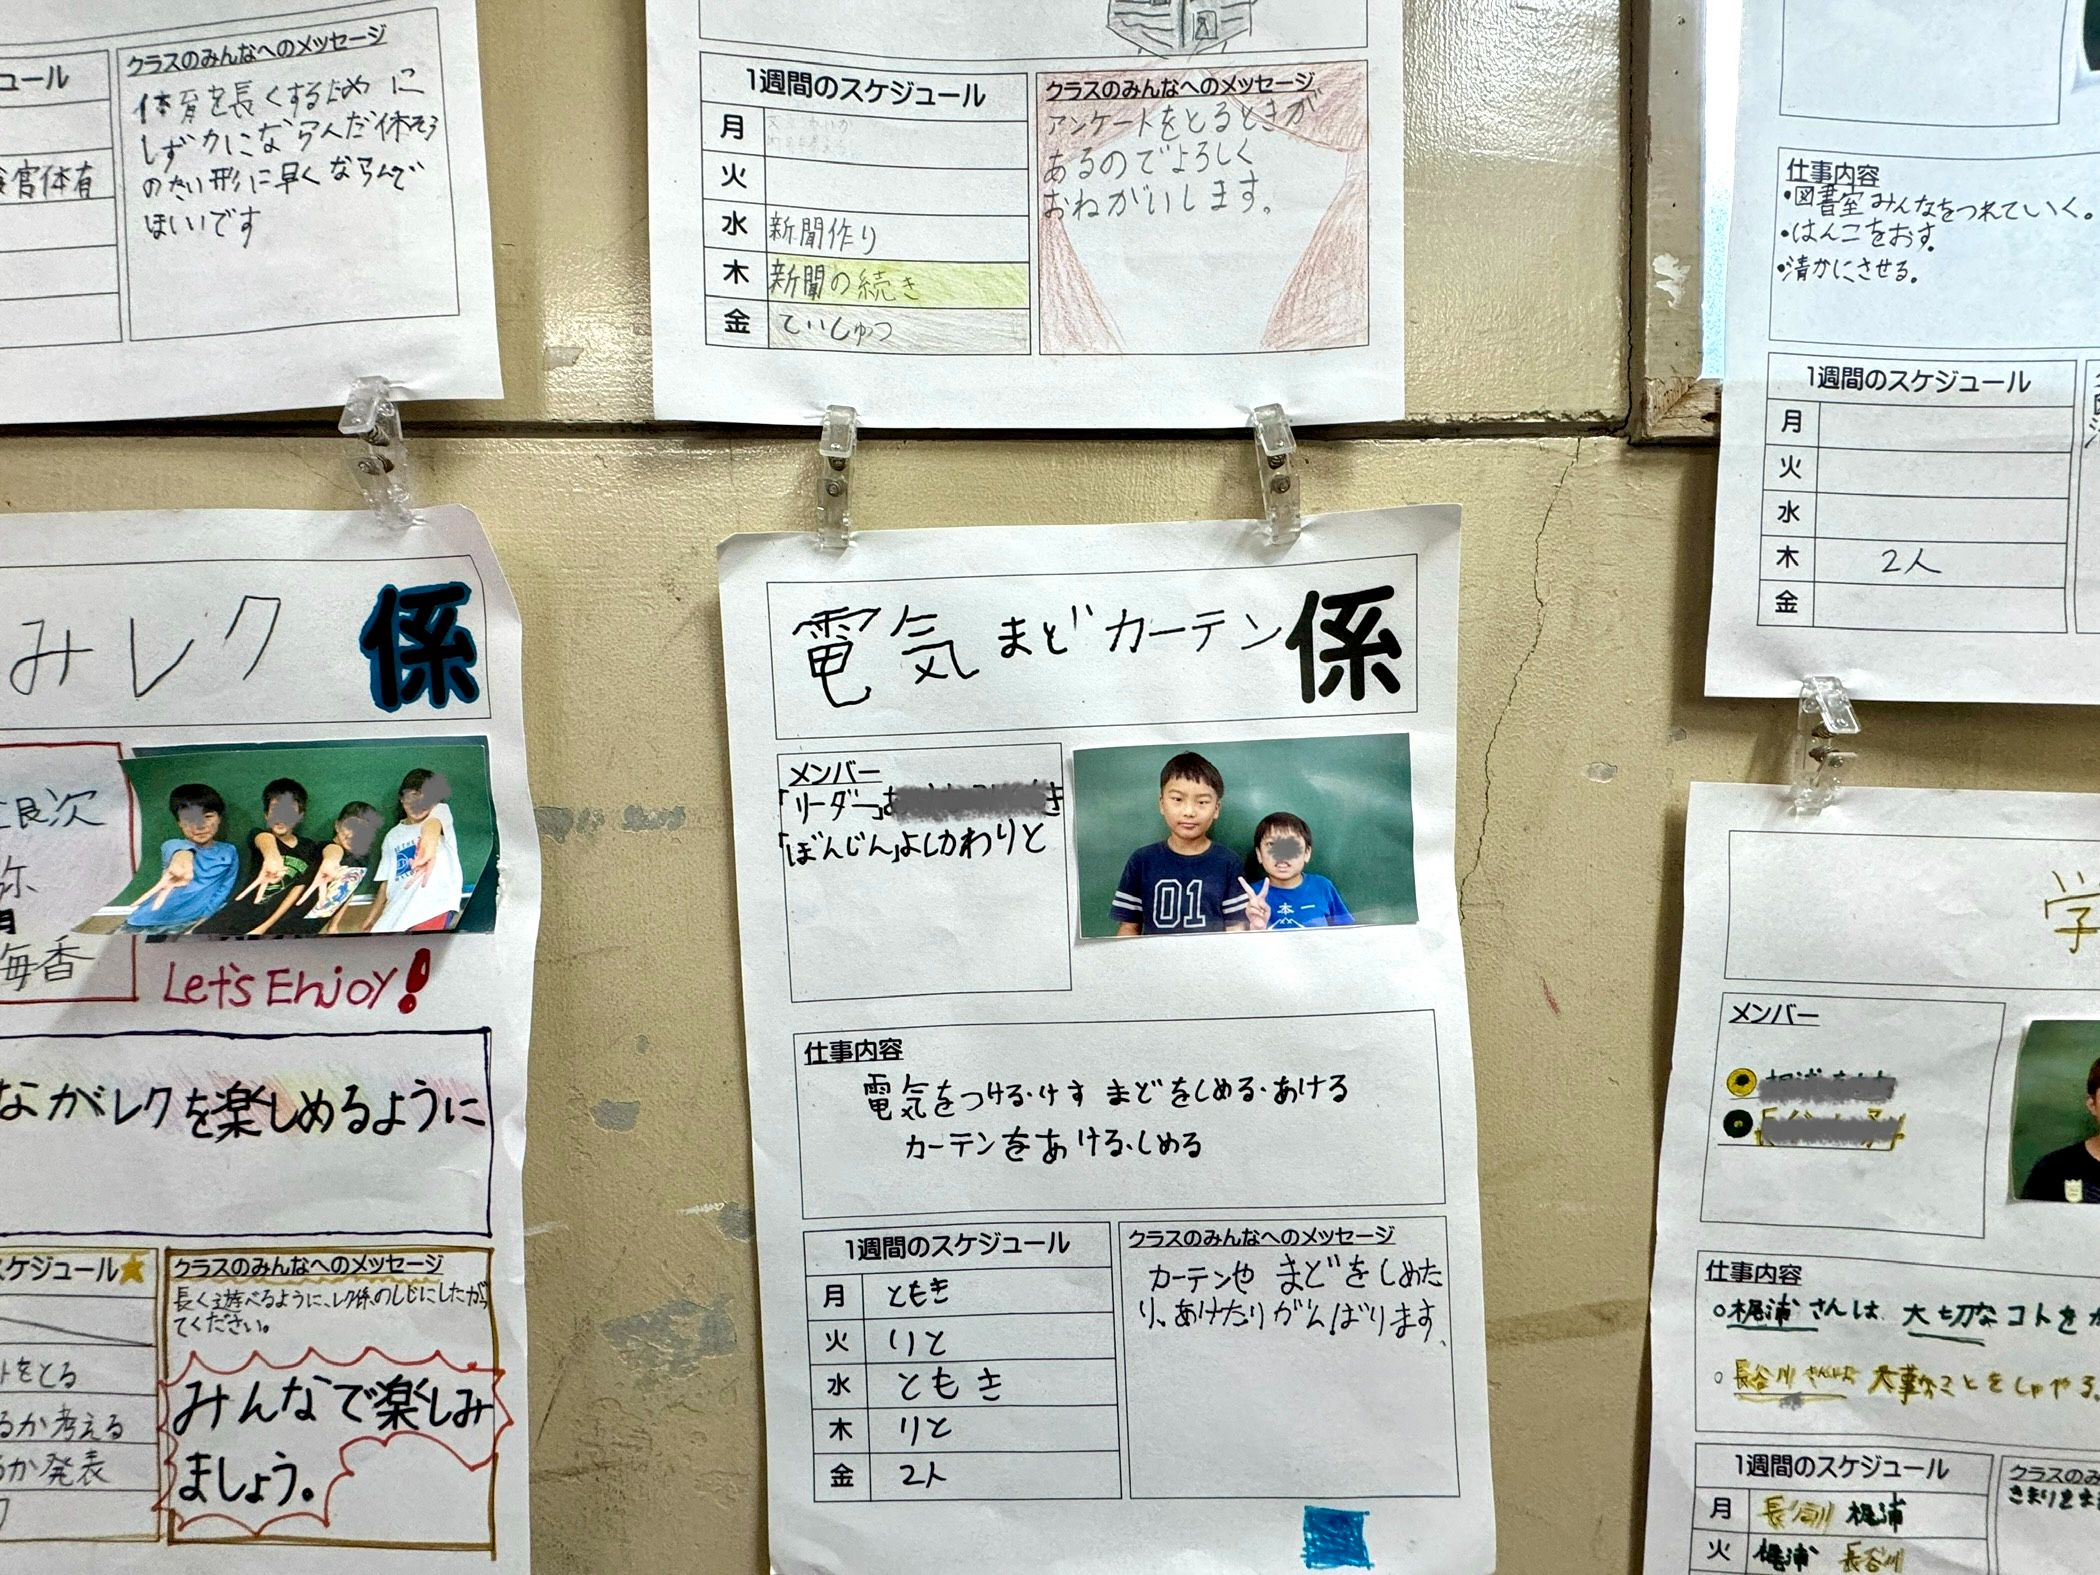 ュール
官体有
クラスのみんなへのメッセージ
体育を長くするために
しずかにならんだ体そう
のたい形に早くならんで
ほいいです
1週間のスケジュール
月
火
水 新聞作り
木 新聞の続き
金 ていしゅつ
クラスのみんなへのメッセージ
アンケートをとるときが
あるのでよろしく
おねがいします。
仕事内容
•図書室みんなをつれていく。
•はんこをおす
•清かにさせる。
1週間のスケジュール
月
火
水
木 2人
金
みレク 係
良次
弥
月
海香
Let's Enjoy!
ながレクを楽しめるように
スケジュール
トをとる
るか考える
るか発表
クラスのみんなへのメッセージ
長く遊べるように、レク係のしじにしたがっ
てください。
みんなで楽しみ
ましょう。
電気まどカーテン係
メンバー
「リーダー」き
「ぼんじん」よしかわりと
01
本一
仕事内容
電気をつける・けす まどをしめる・あける
カーテンをあける・しめる
1週間のスケジュール
月 ともき
火 りと
水 ともき
木 りと
金 2人
クラスのみんなへのメッセージ
カーテンや まどをしめた
り、あけたりがんばります。
学
メンバー
仕事内容
○梶浦さんは 大切なコトを
○長谷川さんは 大事なことをしゃべる
1週間のスケジュール
月 長谷川 梶浦
火 梶浦 長谷川
クラスのみ